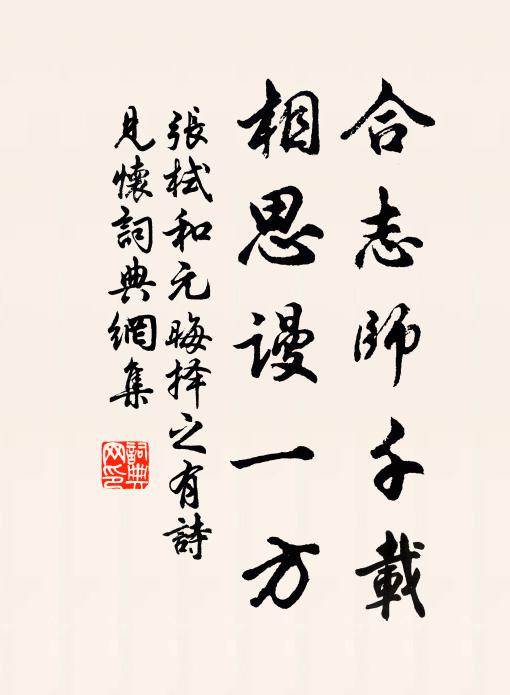 合志師千載
相思謾一方
張栻和元晦择之有詩
見懷詞典網集
詞典网印